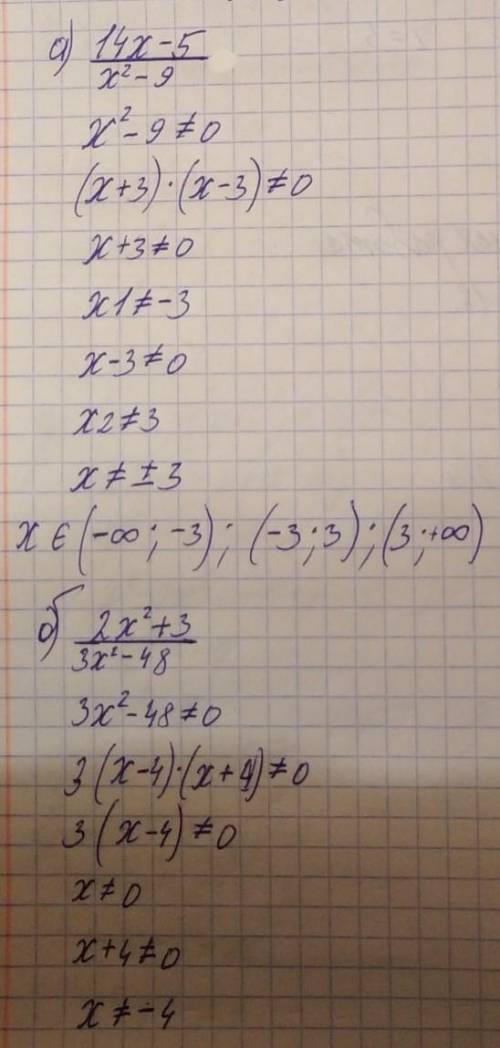 а) 14x-5
x²-9
x²-9≠0
(x+3)·(x-3)≠0
x+3≠0
x1≠-3
x-3≠0
x2≠3
x≠±3
x∈(-∞;-3);(-3;3);(3;+∞)
б) 2x²+3
3x²-48
3x²-48≠0
3(x-4)·(x+4)≠0
3(x-4)≠0
x≠0
x+4≠0
x≠-4